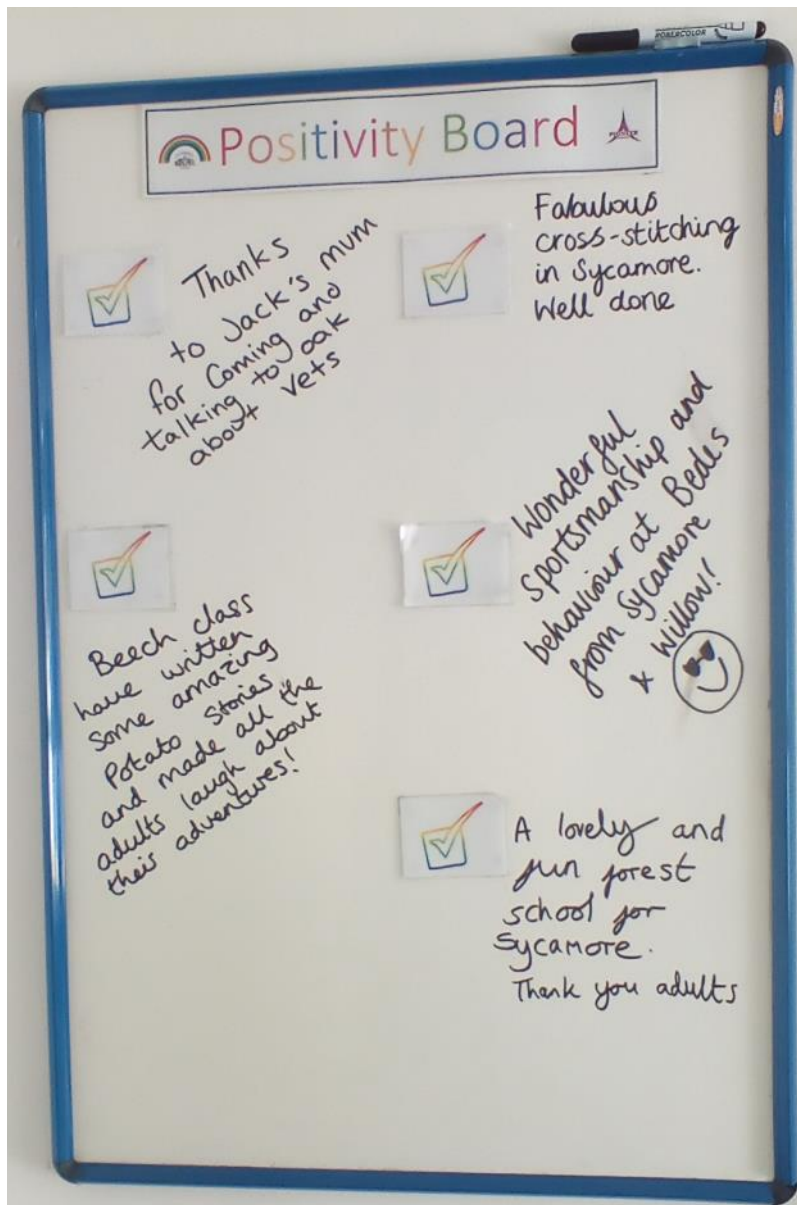 Positivity Board
Thanks
to Jack's mum
for Coming and
talking to oak
about vets
Fabulous
cross-stitching
in Sycamore.
Well done
Beech class
have written
some amazing
Potato stories
and made all the
adults laugh about
their adventures!
Wonderful
sportsmanship and
behaviour at Bedes
from Sycamore
& Willow!
A lovely and
fun forest
school for
Sycamore.
Thank you adults